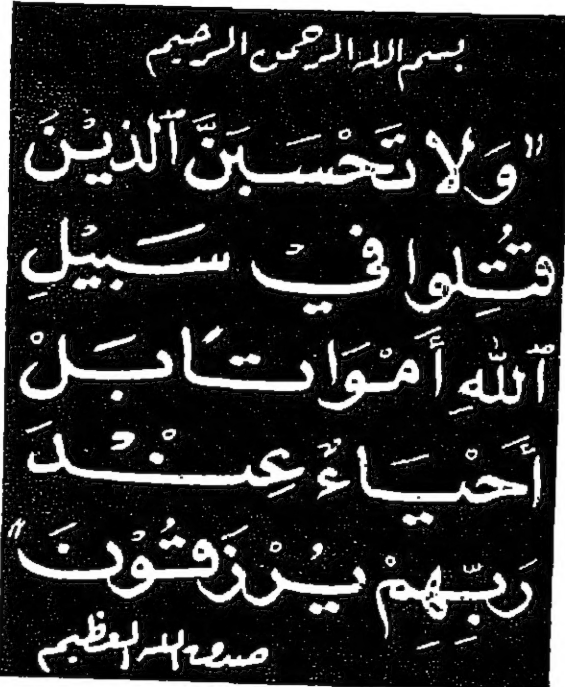 بسم الله الرحمن الرحيم
"وَلا تَحْسَبَنَّ ٱلذيْنَ
قُتُلِوا فيْ سَبيْلِ
ٱللهِ أَمْوَاتًا بَلْ
أَحْيَاءٌ عِنْدَ
رَبِّهِمْ يُرْزَقُوْنَ"
صدق الله العظيم